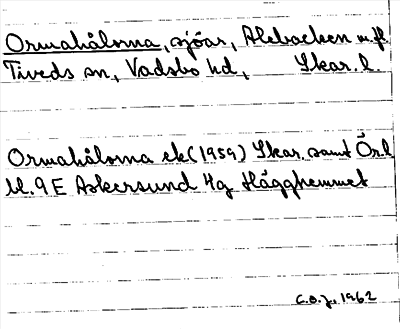 Ormahålorna, sjöar, Alebacken m.fl.
Tiveds sn, Vadsbo hd, Skar. l.
Ormahålorna ek (1959) Skar. samt Örl
bl. 9E Askersund 4g Hägghemmet
C.O.J. 1962